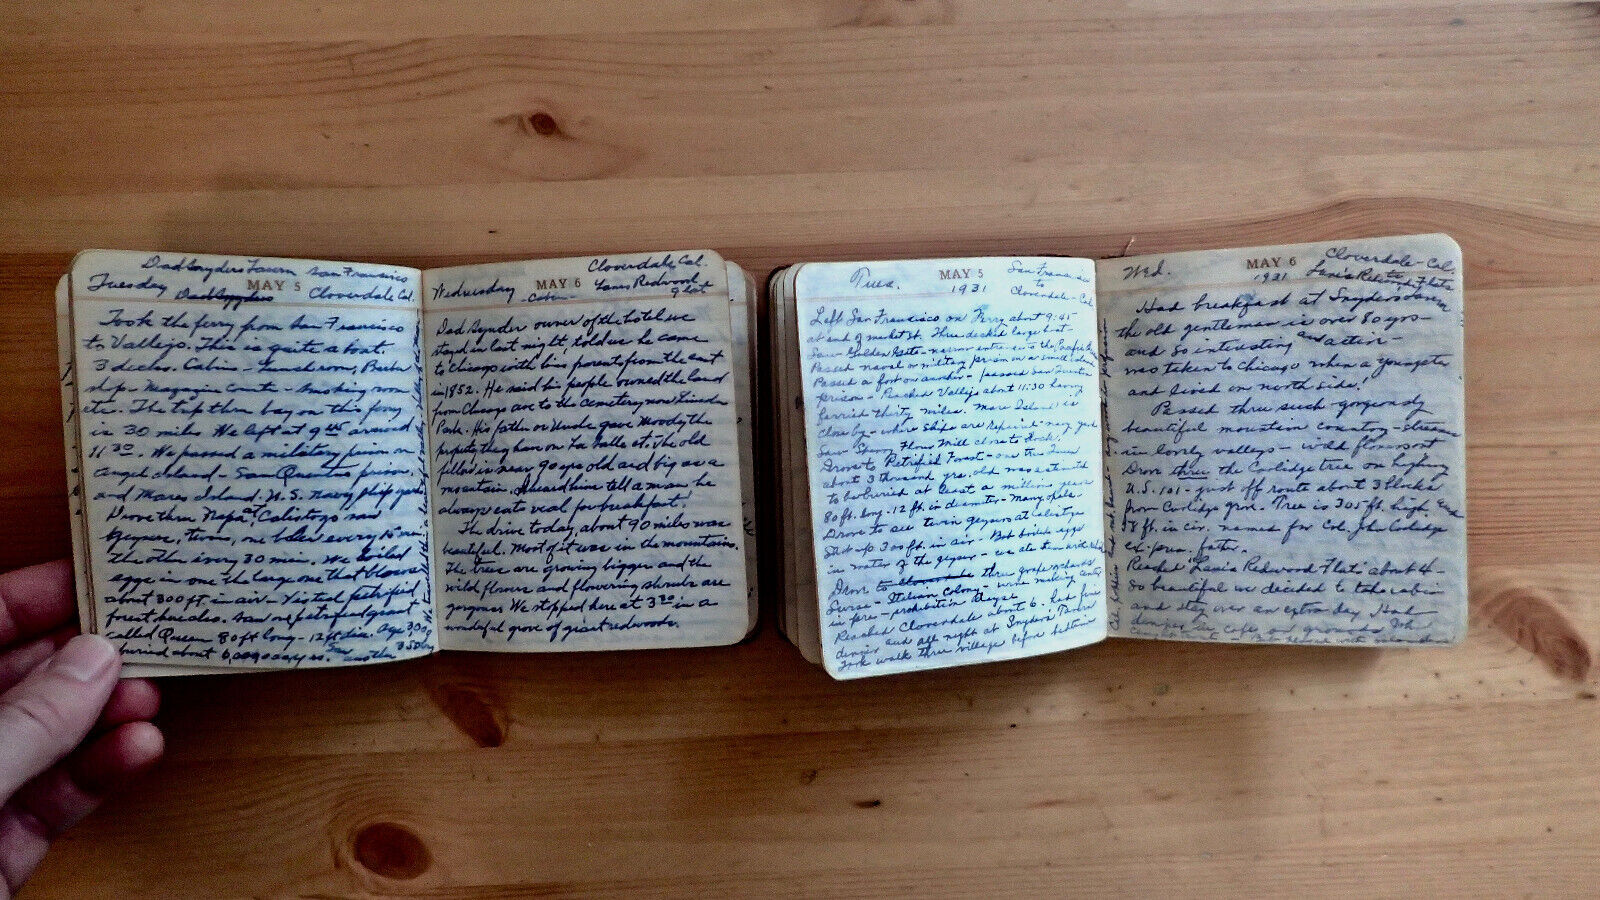 Dad Snyders Tavern San Francisco
Tuesday MAY 5
Dad Snyders Cloverdale Cal.
Took the ferry from San Francisco
to Vallejo. This is quite a boat.
3 decks. Cabin - Lunch room, Barber
shop - Magazine counter - Smoking room
etc. The trip thru bay on this ferry
is 30 miles. We left at 9 45 arrived
11 30. We passed a military prison on
Angel Island - San Quentin prison
and Mares Island. U.S. Navy ship yard
Drove thru Napa at Calistoga saw
Geyser, twins, one blew every 15 min.
the other every 30 min. We boiled
eggs in one the large one that blows
about 300 ft in air - Visited petrified
forest besides. Saw one petrified giant
called Queen 80 ft long - 12 ft dia. Age 3000
buried about 6,000,000 yrs. Saw another
We traveled
Wednesday MAY 6 Cloverdale, Cal.
Cabin Redwood
flat
Dad Synder owner of the hotel we
stayed in last night, told us he came
to Chicago with his parents from the east
in 1852. He said his people owned the land
from Chicago ave to the cemetery now Lincoln
Park. His father or Uncle gave Moody the
property they have on La Salle st. The old
fellow is near 90 yrs old and big as a
mountain. I heard him tell a man he
always eats veal for breakfast.
The drive today, about 90 miles was
beautiful. Most of it was in the mountains.
The trees are growing bigger and the
wild flowers and flowering shrubs are
gorgeous. We stopped here at 3 30 in a
wonderful grove of giant redwoods.
Tues. MAY 5 San Francisco
1931 to
Cloverdale - Cal.
Left San Francisco on Ferry about 9:45
at end of market st. Three decked large boat -
Saw Golden Gate - narrow entrance to the Pacific
Passed naval or military prison on a small island
Passed a fort on another - passed San Quentin
prison - Reached Vallejo about 11:30 having
ferried thirty miles. Mare Island is
close by - where ships are repaired - navy yard
Saw Sperry Flour Mill close to dock.
Drove to Petrified Forest - one the Queen
about 3 thousand yrs. old was
to be buried at least a million years
80 ft. long - 12 ft. in diameter - Many
Drove to see twin geysers at Calistoga
Shot up 300 ft. in air. Bob boiled eggs
in water of the geyser - we ate them
Drove to Cloverdale thru grape orchards
Swiss - Italian Colony - wine making center
in pre - prohibition days
Reached Cloverdale about 6. had fine
dinner and all night at Snyders' Tavern
Took walk thru village before bedtime
Wed. MAY 6 Cloverdale - Cal.
1931 Redwood Flats
Had breakfast at Snyders Tavern
the old gentleman is over 80 yrs -
and so interesting and active -
was taken to Chicago when a youngster
and lived on north side!
Passed thru such gorgeously
beautiful mountain country - streams
in lovely valleys - wild flowers
Drove thru the Coolidge tree on highway
U.S. 101 - just off route about 3 blocks
from Coolidge grove. Tree is 305 ft. high and
78 ft. in cir. names for Col. John Coolidge
ex-pres. father.
Reached Redwood Flat about 4 -
so beautiful we decided to take cabin
and stay over an extra day. Had